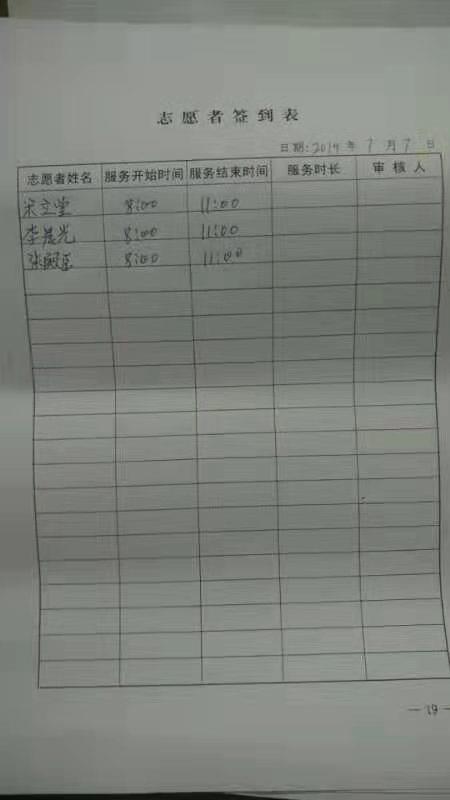 志愿者签到表
日期:2019 年 7 月 7 日
志愿者姓名 服务开始时间 服务结束时间 服务时长 审核人
宋立堂 8:00 11:00
李晨光 8:00 11:00
张殿臣 8:00 11:00
—19—